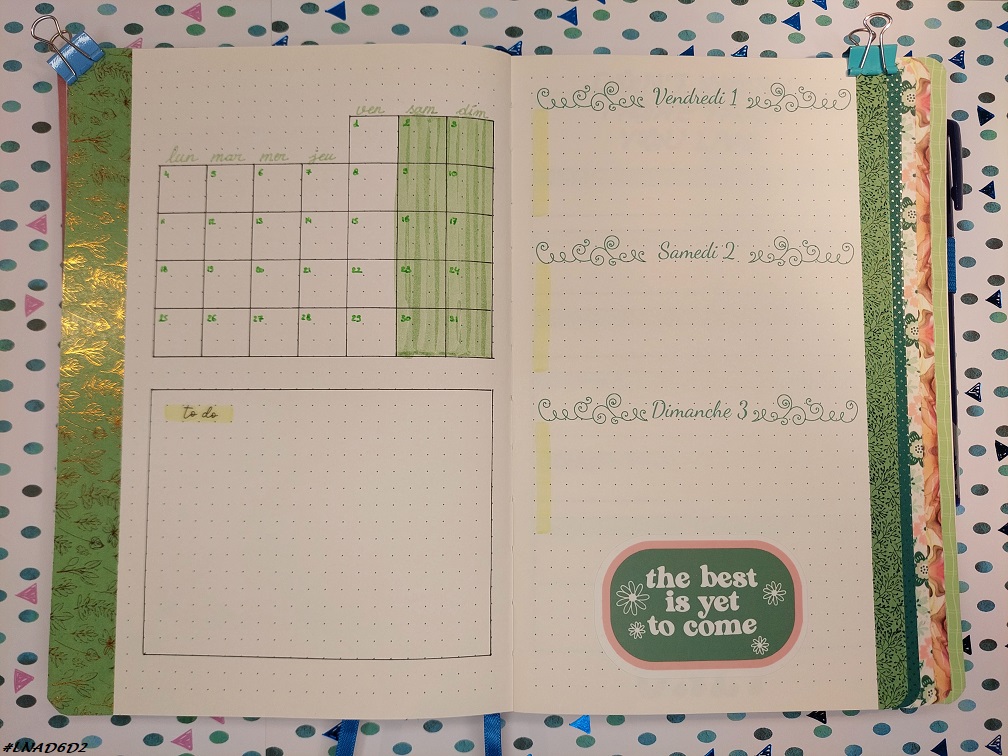 ven sam dim
1 2 3
lun mar mer jeu
4 5 6 7 8 9 10
11 12 13 14 15 16 17
18 19 20 21 22 23 24
25 26 27 28 29 30 31
to do
Vendredi 1
Samedi 2
Dimanche 3
the best
is yet
to come
#LNAD6D2